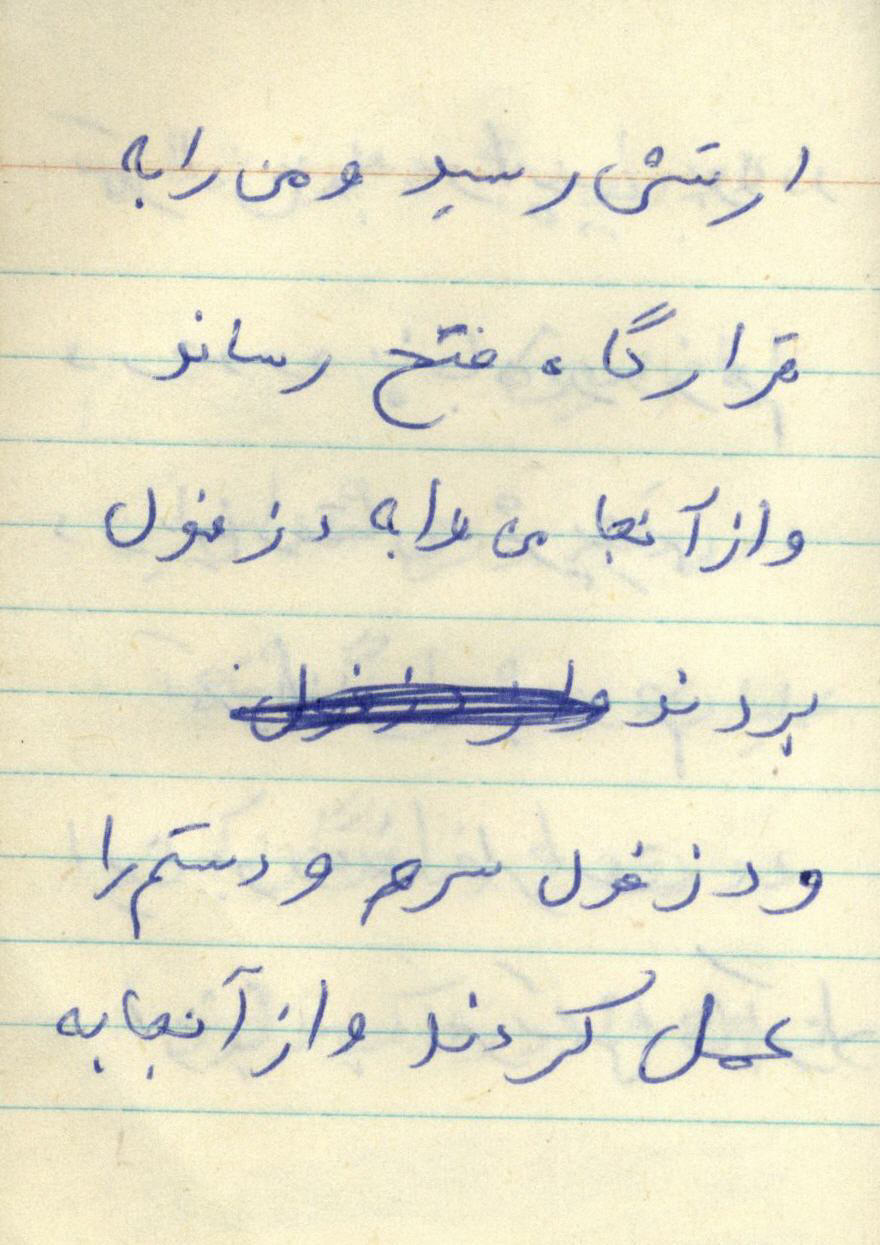 ارتش رسید و من را به
قرارگاه فتح رساند
و از آنجا من را به دزفول
بردند
و دزفول سرم و دستم را
عمل کردند و از آنجا به